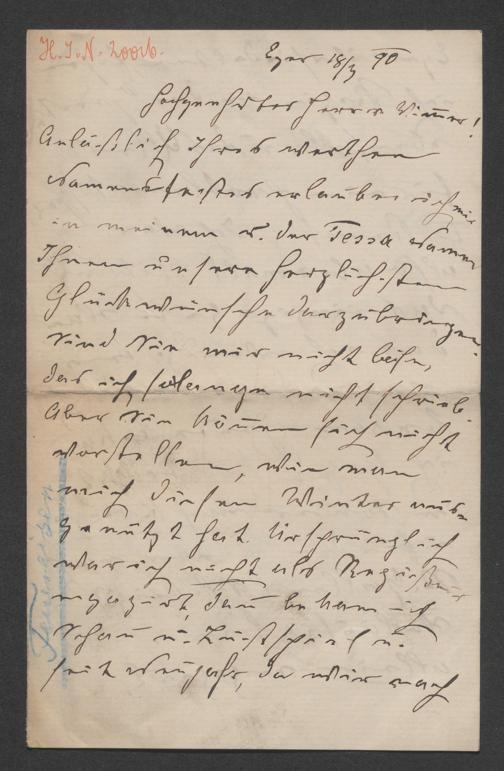 H.I.N. 20026.
Eger 18/3 90
Hochgeehrter Herr Wimmer!
Anläßlich Ihres werthen
Namensfestes erlaube ich mir
in meinem u. der Tessa Namen
Ihnen unsere herzlichsten
Glückwünsche darzubringen.
Sind Sie mir nicht böse,
das ich solange nicht schrieb
aber Sie können sich nicht
vorstellen, wie man
mich diesen Winter aus-
genützt hat. Ursprünglich
war ich nicht als Regisseur
engagirt, dan bekam ich
Schau u. Lustspiel u.
seit Neujahr, da wir nach